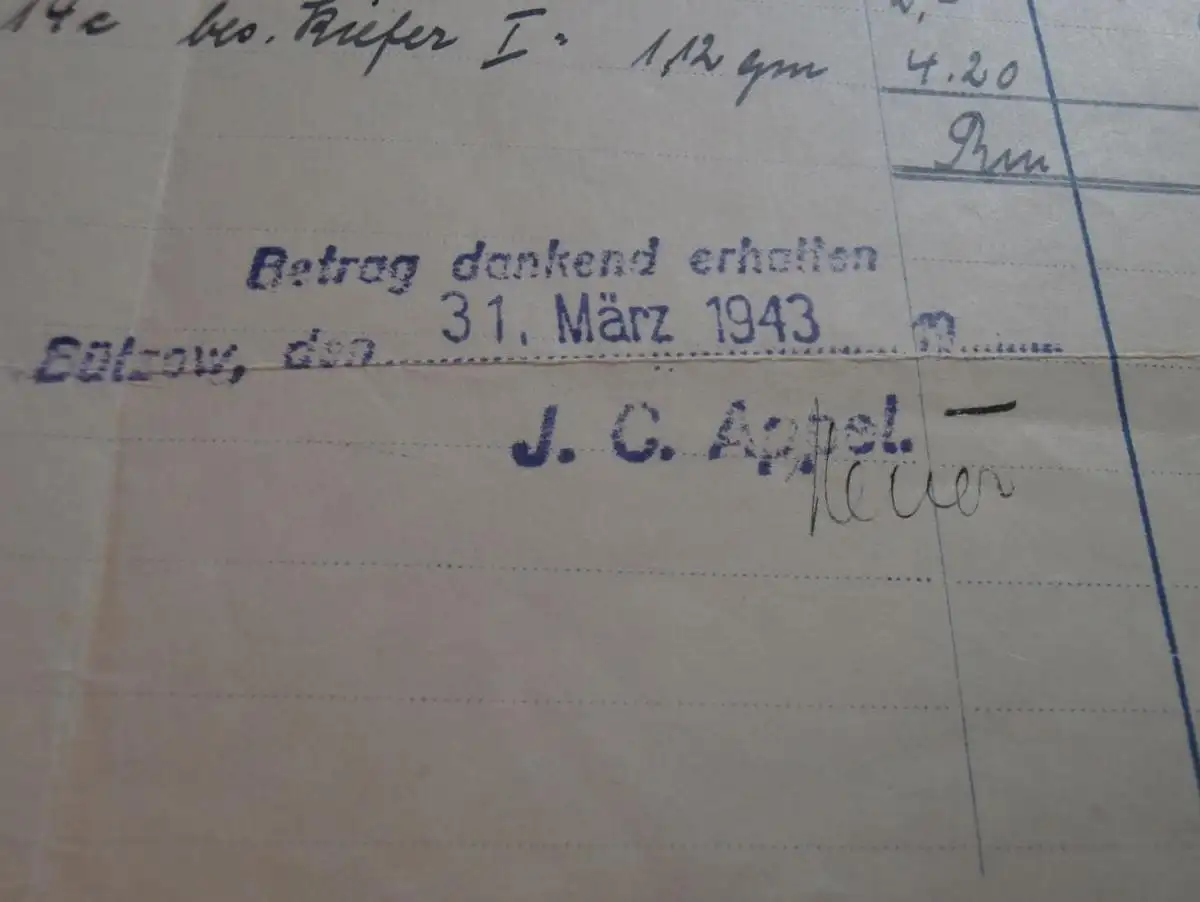 2,-
14e bes. Kiefer I= 1,12 qm 4.20
Rm
Betrag dankend erhalten
Bützow, den 31. März 1943
J. C. Appel.